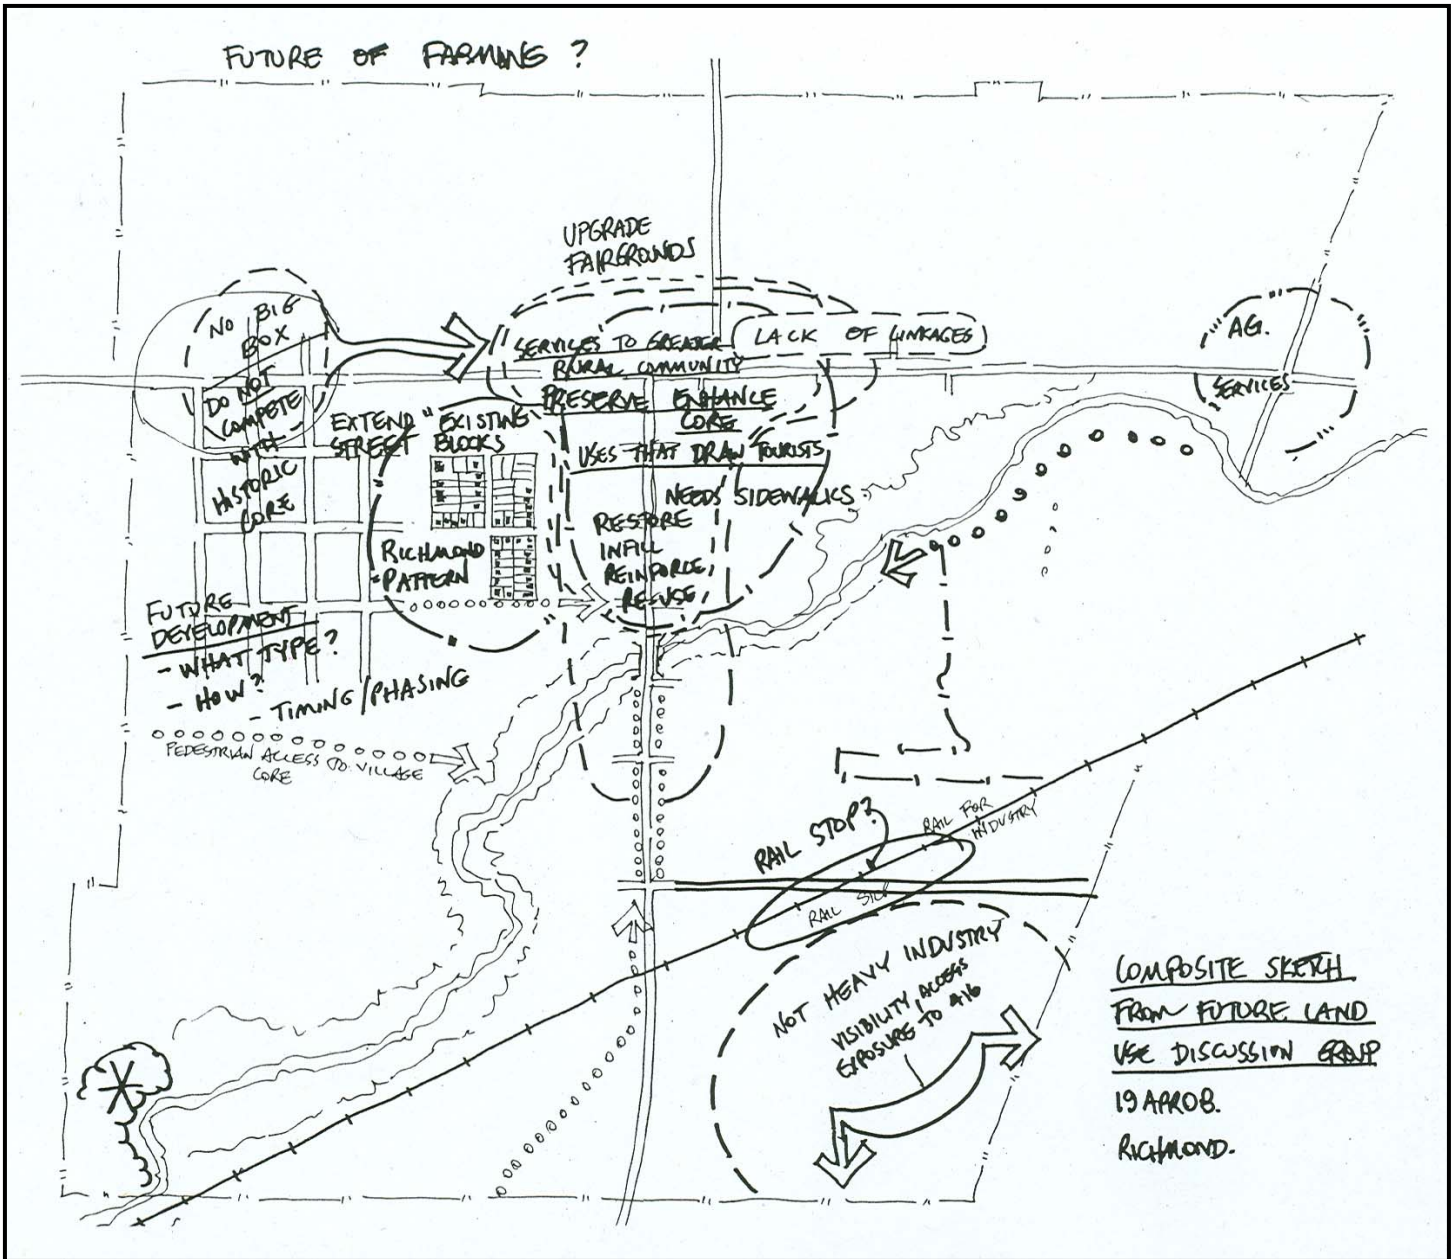 FUTURE OF FARMING ?
UPGRADE
FAIRGROUNDS
NO BIG
BOX
DO NOT
COMPETE
WITH
HISTORIC
CORE
SERVICES TO GREATER
RURAL COMMUNITY
LACK OF LINKAGES
AG.
SERVICES
PRESERVE ENHANCE
CORE
USES THAT DRAW TOURISTS
EXTEND "EXISTING
STREET BLOCKS
NEEDS SIDEWALKS
RESTORE
INFILL
REINFORCE
RE-USE
RICHMOND
PATTERN
FUTURE
DEVELOPMENT
- WHAT TYPE?
- HOW?
- TIMING/PHASING
PEDESTRIAN ACCESS TO VILLAGE
CORE
RAIL STOP?
RAIL FOR
INDUSTRY
RAIL
NOT HEAVY INDUSTRY
VISIBILITY, ACCESS
EXPOSURE TO 416
COMPOSITE SKETCH
FROM FUTURE LAND
USE DISCUSSION GROUP
19 APR 08.
RICHMOND.